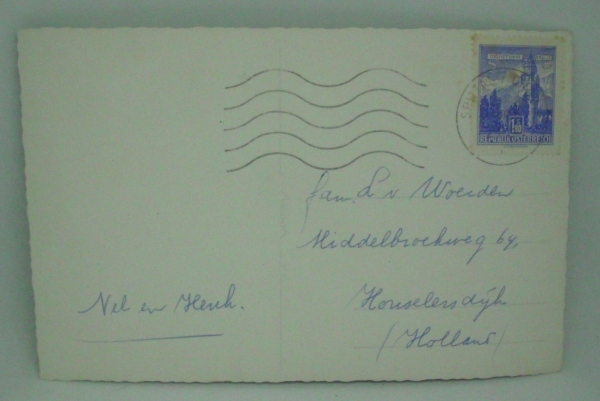 1.80
REPUBLIK ÖSTERREICH
fam. L. v Woerden
Middelbroekweg 64.
Honselersdijk
(Holland)
Nel en Henk.